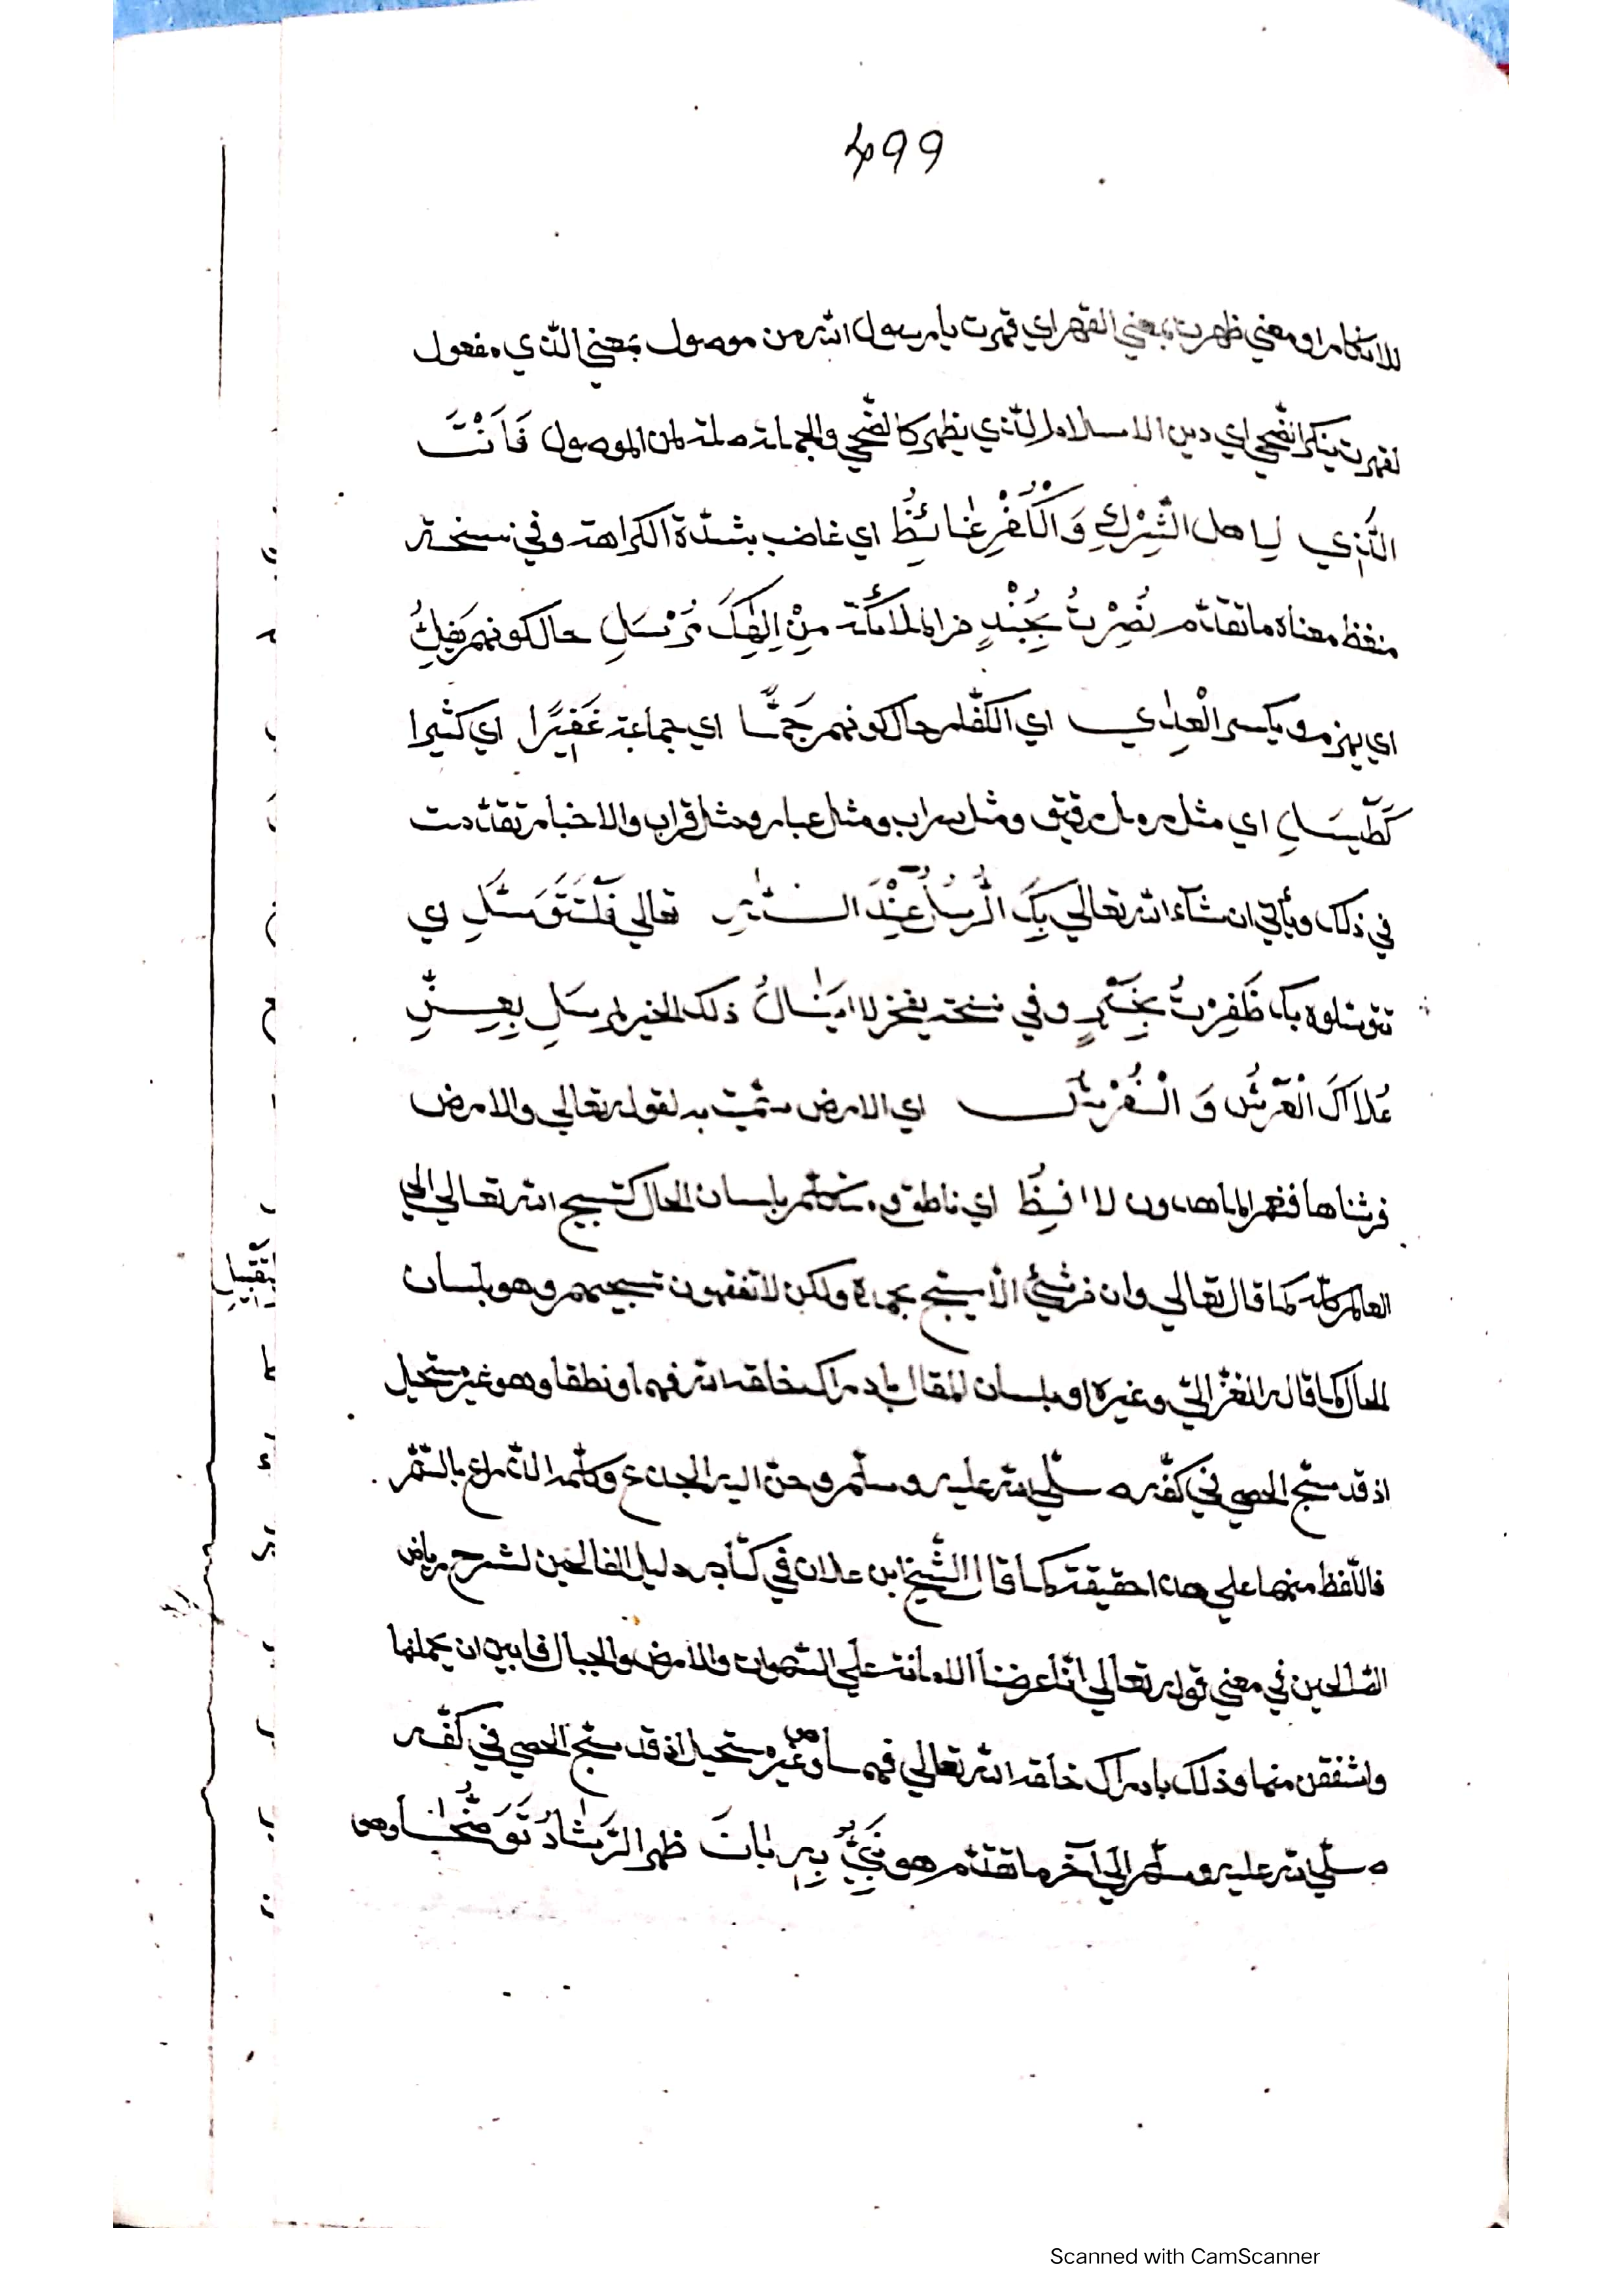 499
للانكار او معني ظهرت بمعني القهر اي قهرت يا رسول الله من موصول بمعني الذي مفعول
لقهرت ينكر الضحي اي دين الاسلام الذي يظهر كالضحي والجملة صلة لمن الموصول فَاَنْتَ
الَّذِي لِاهل الشِّرْكِ وَالْكُفْرِ غَائِظُ اي غاضب بشدة الكراهة وفي نسخة
منغظ معناه ما تقدم نُصِرْتُ بِجُنْدٍ من الملائكة مِنْ اِلٰهِكَ مُرْسَلِ حال كونهم يَفُلُّ
اي يهزم ويكسر الْعِدٰي اي الكفار حال كونهم جَمًّا اي جماعة غَفِيْرًا اي كثيرا
كَطَيْسَلِ اي مثل رمل رقيق ومثل سراب ومثل غبار ومثل تراب والاخبار تقدمت
في ذلك ويأتي ان شآء الله تعالي بِكَ الرُّسُلُ عِنْدَ اللهِ تعالي فَلْتَتَوَسَّلِ اي
تتوسلوه بك ظَفِرْتُ بِخَيْرٍ وفي نسخة بفخر لا يُنَالُ ذلك الخير لمرسَلِ بِعِزِّ
عُلَاكَ الْعَرْشُ وَ الْفُرْشُ اي الارض سميت به لقوله تعالي والارض
فرشناها فنعم الماهدون لافِظُ اي ناطق ومتكلم بلسان الحال كتسبيح الله تعالي الي
العالم كله كما قال تعالي وان من شيئ الا يسبح بحمده ولكن لا تفقهون تسبيحهم وهو بلسان
الحال كما قاله الغزالي وغيره او بلسان المقال بادراك خلقه الله فيها ونطقا وهو غير مستحيل
اذ قد سبح الحصي في كفه صلي الله عليه وسلم وحن اليه الجذع وكلمه الذراع بالسم
فاللفظ منها علي هذا حقيقة كما قال الشيخ ابن علان في كتابه دليل الفالحين لشرح رياض
الصالحين في معني قوله تعالي انا عرضنا الامانة علي السموات والارض والجبال فابين ان يحملنها
واشفقن منها وذلك بادراك خلقه الله تعالي فيها وهو غير مستحيل اذ قد سبح الحصي في كفه
صلي الله عليه وسلم الي آخر ما تقدم هو نَبِيٌّ بِهِ بَانَ ظهر الرَّشَادُ تَوَضُّحًا وهو
Scanned with CamScanner